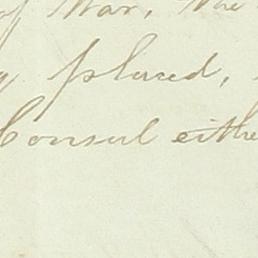 of War, The
placed,
Consul eithe